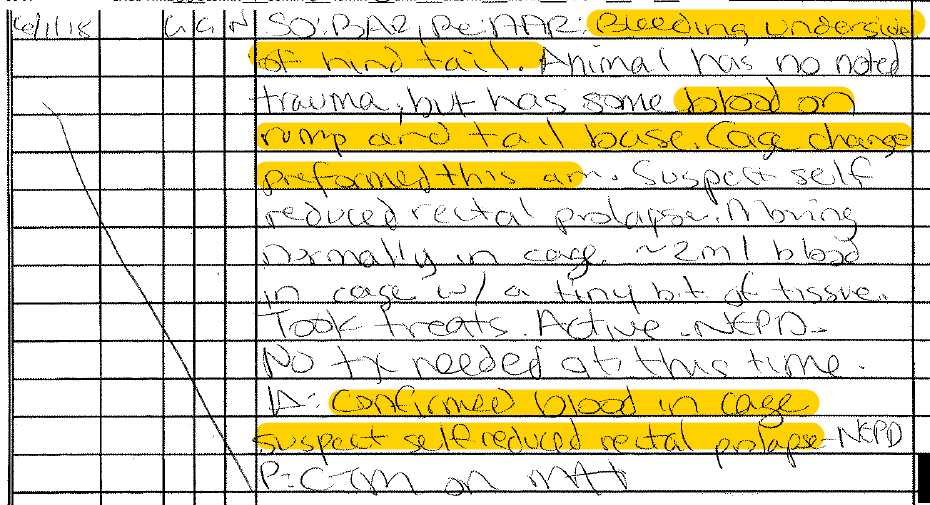 6/1/18 G G N SO: BAR, Re: AAR: Bleeding underside
of hind tail. Animal has no noted
trauma, but has some blood on
rump and tail base. Cage change
preformed this am. Suspect self
reduced rectal prolapse. Moving
normally in cage. ~2ml blood
in cage w/ a tiny bit of tissue.
Took treats. Active - NEPD -
No tx needed at this time.
A: confirmed blood in cage
suspect self reduced rectal prolapse - NEPD
P: CTM on